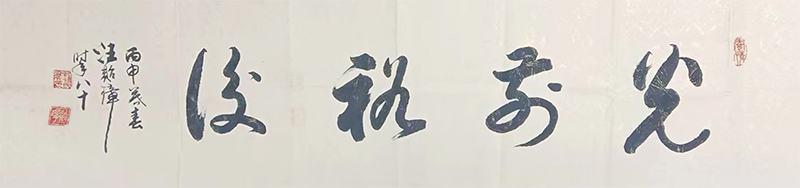 光前裕後
丙申暮春
汪新璋
时年八十